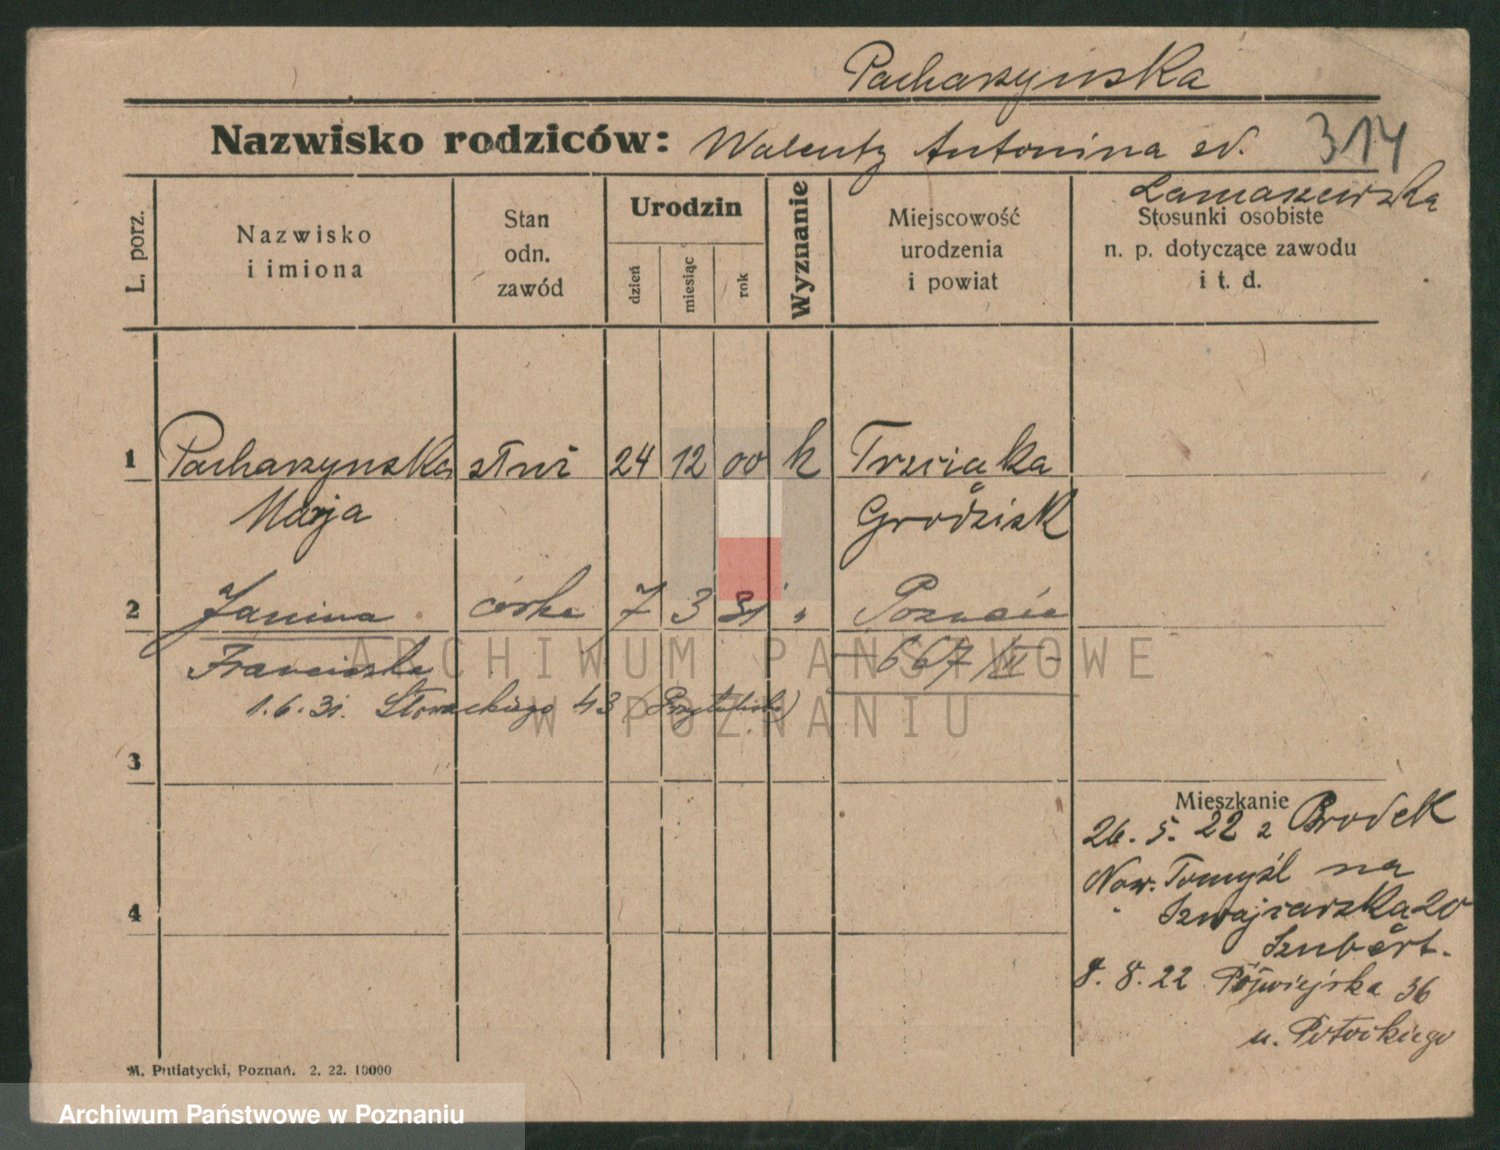 Pacharzynska
Nazwisko rodziców: Walenty Antonina zd. 314
Łamaszewska
L. porz.
Nazwisko i imiona
Stan odn. zawód
Urodzin
dzień
miesiąc
rok
Wyznanie
Miejscowość urodzenia i powiat
Stosunki osobiste n. p. dotyczące zawodu i t. d.
1 Pacharzynska służ 24 12 00 k Trzcianka
Marja Grodzisk
2 Janina córka 7 3 31 " Poznań
Franciszka 667/II
1.6.31. Słowackiego 43
3
Mieszkanie
26. 5. 22 z Brodek
Now. Tomyśl na
4
Szwajcarska 20
Szubert.
8. 8. 22 Półwiejska 36
u. Potockiego
M. Putiatycki, Poznań. 2. 22. 10000
ARCHIWUM PAŃSTWOWE
W POZNANIU
Archiwum Państwowe w Poznaniu